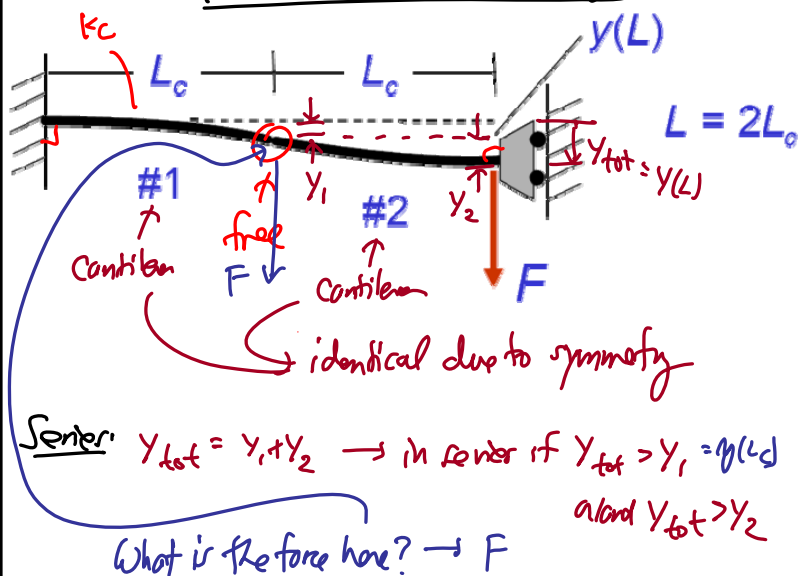 kc
y(L)
Lc
Lc
L = 2Lc
Ytot = y(L)
Y1
Y2
#1
#2
free
F
F
Cantilever
Cantilever
identical due to symmetry
Series: Ytot = Y1+Y2 → in series if Ytot > Y1 = y(Lc)
and Ytot > Y2
What is the force here? → F